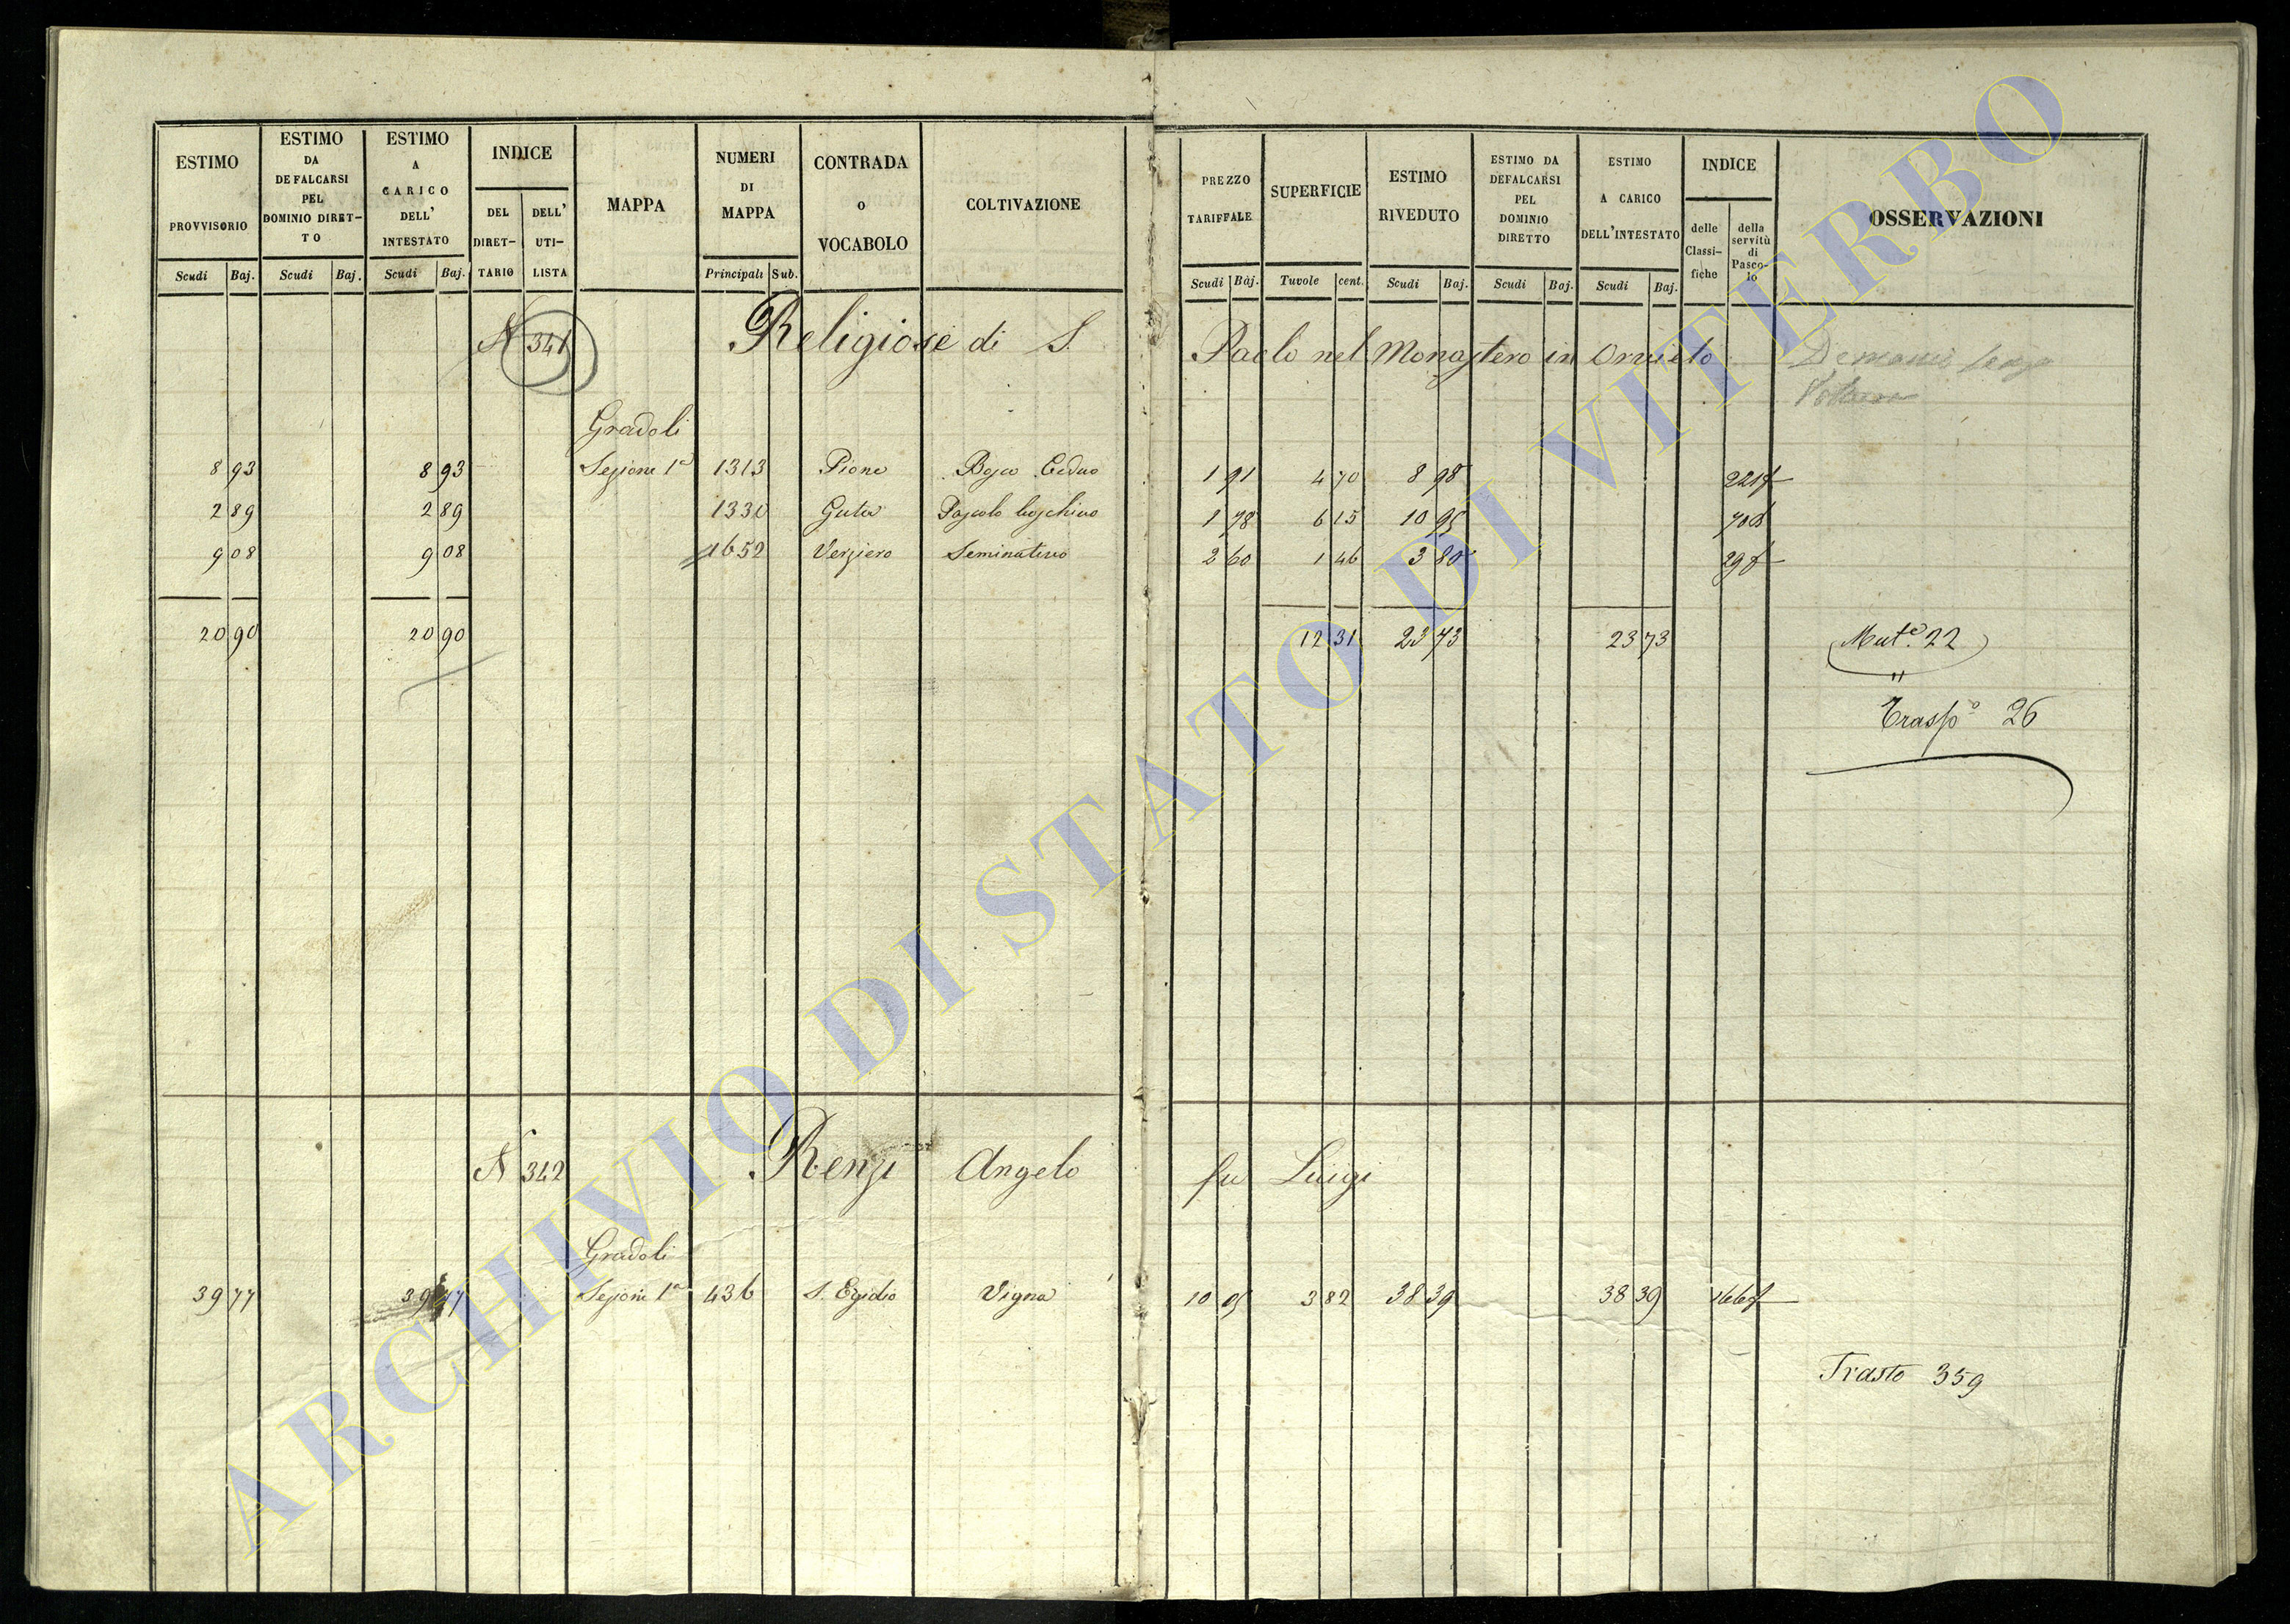 ESTIMO PROVVISORIO Scudi Baj.
ESTIMO DA DEFALCARSI PEL DOMINIO DIRET–TO Scudi Baj.
ESTIMO A CARICO DELL' INTESTATO Scudi Baj.
INDICE DEL DIRET–TARIO DELL' UTI–LISTA
MAPPA
NUMERI DI MAPPA Principali Sub.
CONTRADA o VOCABOLO
COLTIVAZIONE
PREZZO TARIFFALE Scudi Baj.
SUPERFICIE Tavole cent.
ESTIMO RIVEDUTO Scudi Baj.
ESTIMO DA DEFALCARSI PEL DOMINIO DIRETTO Scudi Baj.
ESTIMO A CARICO DELL'INTESTATO Scudi Baj.
INDICE delle Classi–fiche della servitù di Pasco–lo
OSSERVAZIONI
N 341 Religiose di S. Paolo nel Monastero in Orvieto
Gradoli
8 93 8 93 Sezione 1a 1313 Pione Bosco Ceduo 1 91 4 70 8 98 221
2 89 2 89 1330 Guta Pascolo boschivo 1 78 6 15 10 95 708
9 08 9 08 1652 Verziere Seminativo 2 60 1 46 3 80 298
20 90 20 90 12 31 23 73 23 73 Mute. 22
"
Traspo 26
N 342 Renzi Angelo fu Luigi
Gradoli
39 77 39 77 Sezione 1a 436 S. Egidio Vigna 10 05 3 82 38 39 38 39 166
Trasto 359
ARCHIVIO DI STATO DI VITERBO